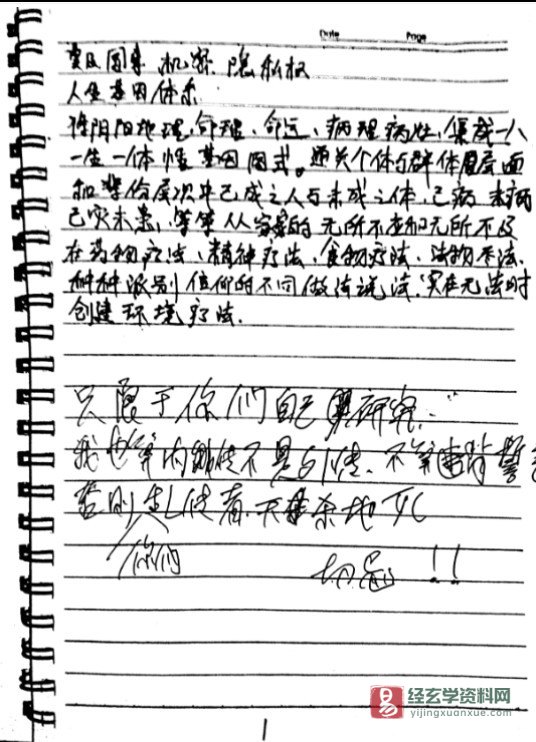 Date Page
因素 机密 隐私权
人生基因体系
阴阳地理、命理、命运、病理病灶,集成一人
一生一体性基因图式。通关个体与群体层面
和 层次中已成之人与未成之体,已病未病
已灾未患,等等从 的无所不查和无所不及
在药物疗法、精神疗法、食物疗法、法物 法、
种种派别信仰的不同做法说法,实在无法时
创建环境疗法.
只限于你们自己 研究.
我也算内 传不是外传、不算违背誓
否则乱传者 天 杀地
你们
切忌!!
1
易 经玄学资料网
yijingxuanxue.com